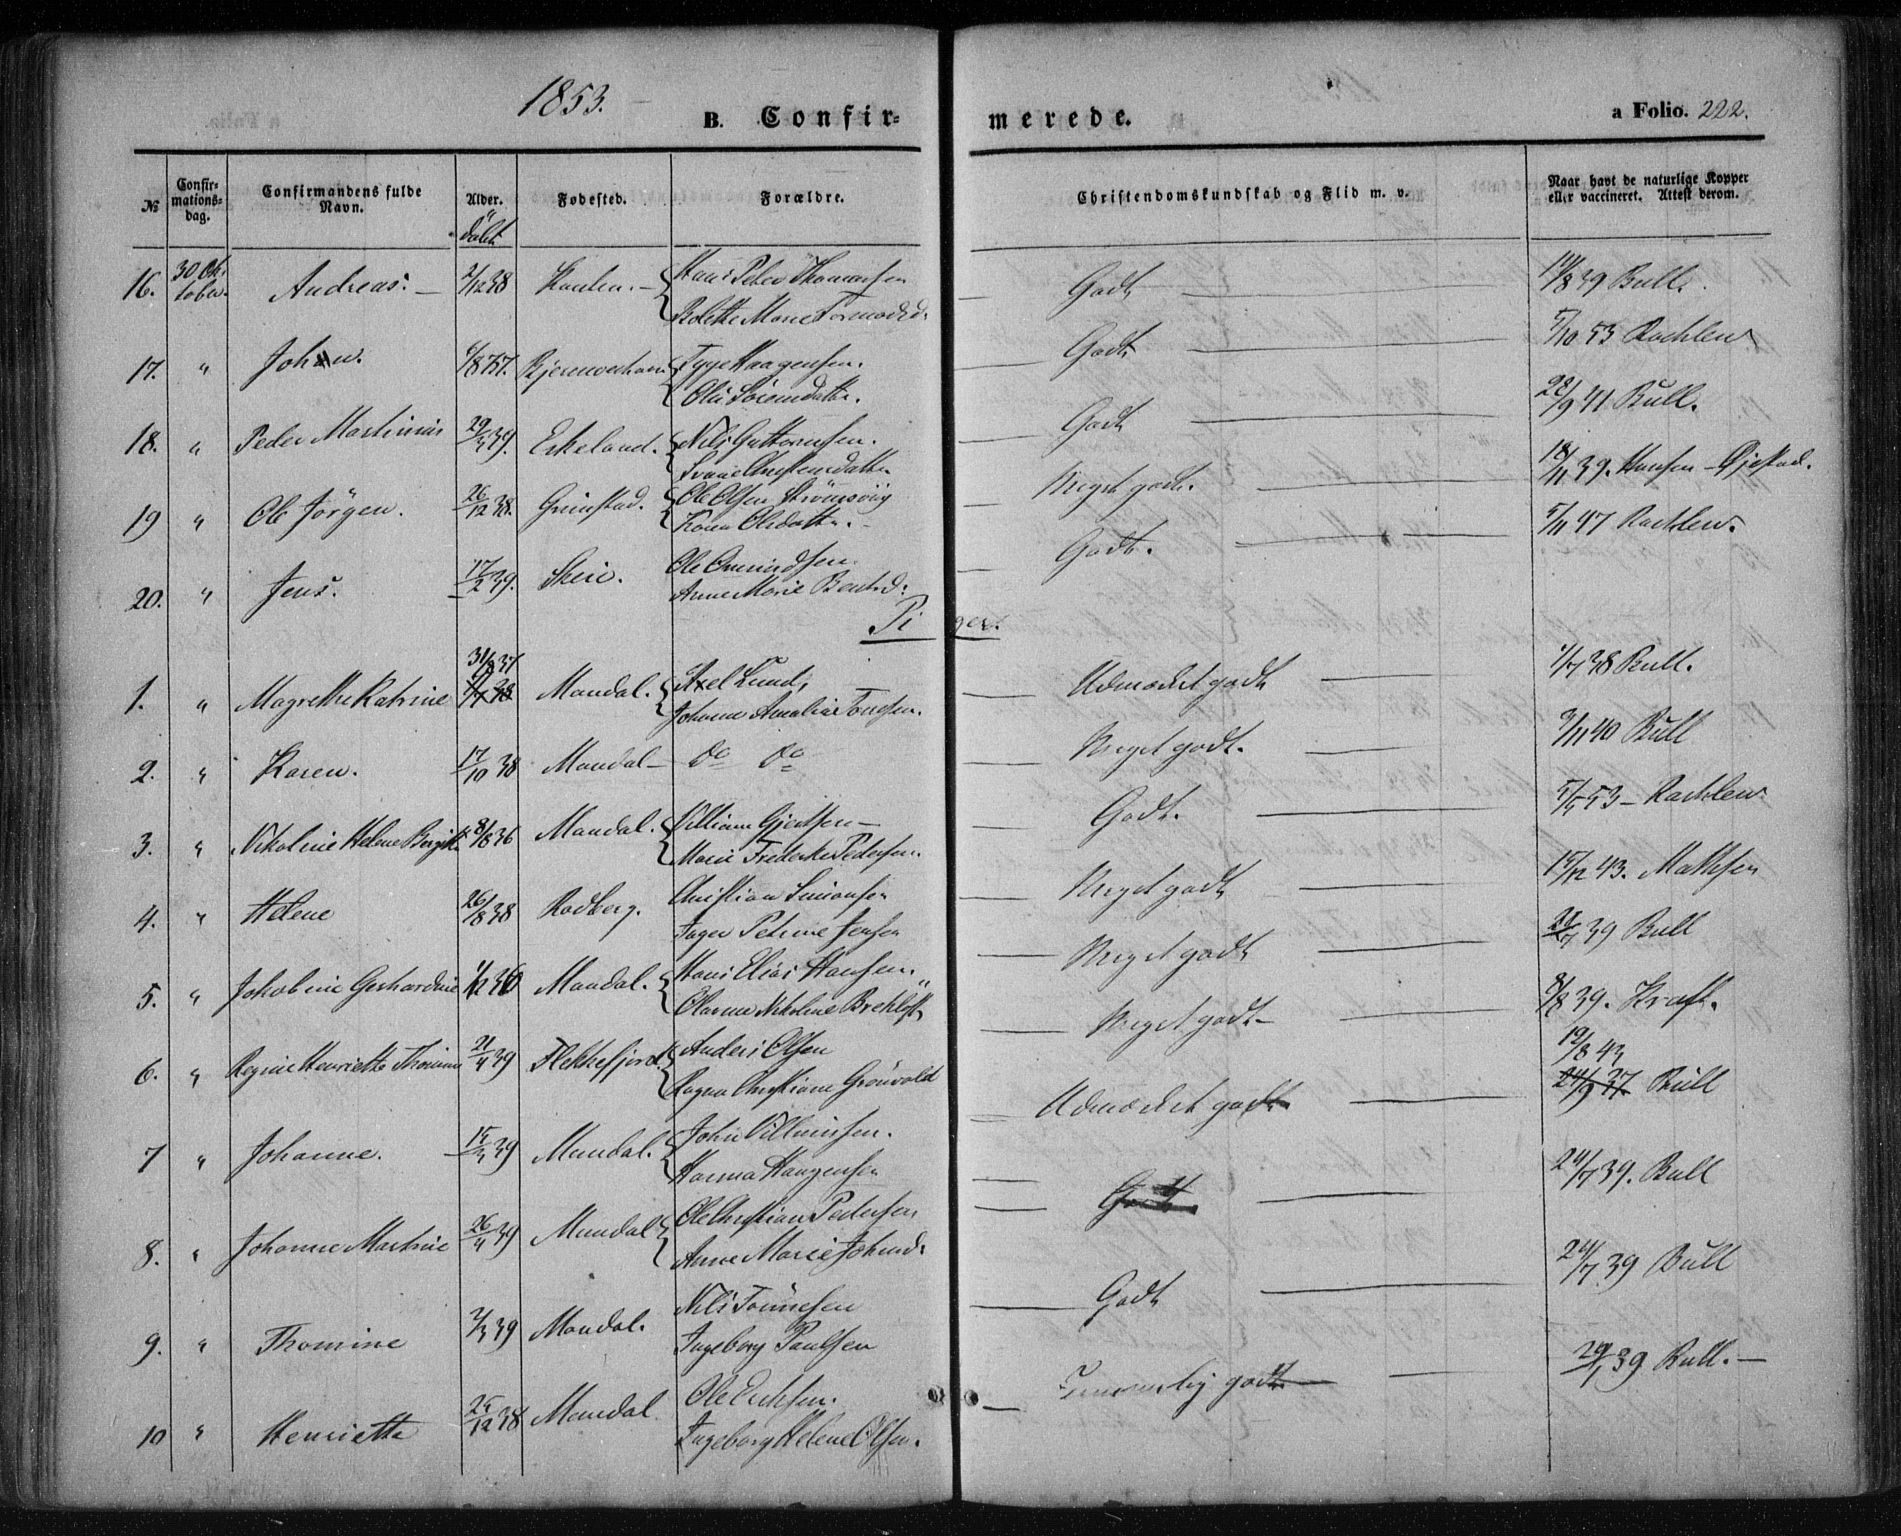 1853.
B. Confirmerede. a Folio. 222.
№ Confirmationsdag. Confirmandens fulde Navn. Alder. Fødested. Forældre. Christendomskundskab og Flid m. v. Naar havt de naturlige Kopper eller vaccineret. Attest derom.
16. 30 Oktober. Andreas. — 2/12 38 Hans Peder Thomassen Godt 14/8 39 Bull.
17. " Tygge Haagensen. Godt 5/10 53 Rachlew
18. " Peder Martinius 29/3 39. Eskeland. Nils Guttormsen. Godt 22/9 41 Bull.
19 " Ole Jörgen. 26/12 38. Grimstad. Ole Olsen Strömsvig Meget godt. 18/11 39. Hansen — Öjestad.
Karen Olsdatter.
20. " Jens. 17/2 39. Skeie. Ole Omundsen Godt. 5/11 47 Rachlew.
Anne Marie
Piger.
1. " Magrethe Katrine 31/8 37 Mandal. Axel Lund, Udmærket godt 1/7 38 Bull.
Johanne Amalia Tonesen.
2. " Karen. 17/10 38 Mandal — do do Meget godt. 9/11 40 Bull
3. " Nikoline Helene 8/8 36 Mandal. Villiam Gjertsen — Godt. 5/5 53 — Rachlew
Marie Frederike Pedersen.
4. " Helene 26/8 38 Rodberg. Christian Simonsen Meget godt 15/12 43. Mathsen
Inger Petrine Jensen
5. " Jakobine Gerhardine Mandal. Hans Elias Hansen. Meget godt 39 Bull
6. " Regine Henriette Thomine 21/4 39 Flekkefjord. Anders Olsen Meget godt — 8/8 39. Kraft.
Ragna Christiane Grönvold
7 " Johanne. 15/3 39 Mandal. John Villumsen. Udmærket godt 12/8 43
24/9 37. Bull
Hanna Haagensen
8. " Johanne Martine 26/4 39 Mandal Ole Christian Pedersen Godt 24/7 39. Bull
Anne Marie Johnsd.
9. " Thomine 2/3 39 Mandal. Nils Tönnesen Godt 24/7 39 Bull
Ingeborg Paulsen
10 " Henriette 25/12 38 Mandal Ole Eriksen. Temmelig godt 39 Bull. —
Ingeborg Helene Olsen.